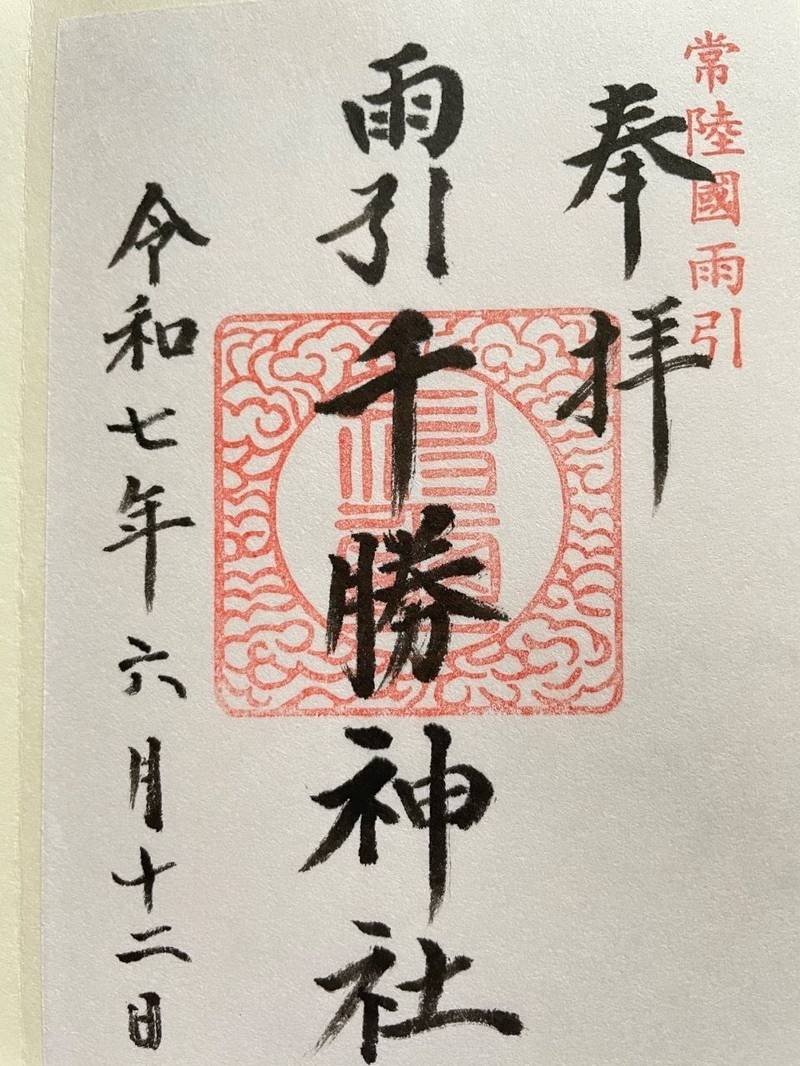 常陸國雨引
奉拝
雨引千勝神社
令和七年六月十二日